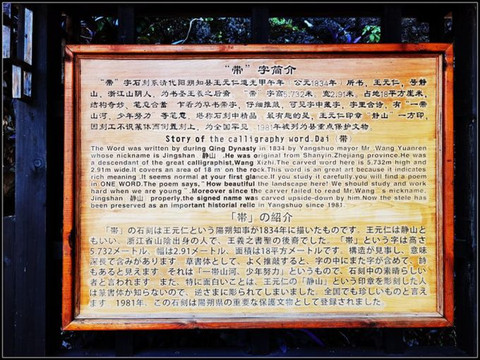 “带”字简介
“带”字石刻系清代阳朔知县王元仁道光甲午年,公元1834年,所书,王元仁,号静
山,浙江山阴人,为书圣王羲之后裔 “带”字高5.732米,宽2.91米,占地18平方厘米,
结构奇妙,笔意含蓄 乍看为草书带字,仔细推敲,可见字中藏字,字里含诗,有“一带
山河,少年努力 等笔意,堪称石刻中精品,最有趣的是,王元仁印章“静山”一方印,
因刻工不识篆体而倒置刻上,为全国罕见 1981年被列为县重点保护文物
Story of the calligraphy word.Dai（带）
The Word was written by during Qing Dynasty in 1834 by Yangshuo mayor Mr.Wang Yuanren
whose nickname is Jingshan 静山 .He was original from Shanyin.Zhejiang province.He was
a descendant of the great calligraphist,Wang Xizhi.The carved word here is 5.732m high and
2.91m wide.it covers an area of 18 m on the rock.This word is an great art because it indicates
rich meaning .It seems normal at your first glance.If you study it carefully.you will find a poem
in ONE WORD.The poem says,"How beautiful the landscape here! We should study and work
hard when we are young .Moreover since the carver failed to read Mr.Wang s nickname,
Jingshan 静山 properly,the signed name was carved upside-down by him.Now the stele has
been preserved as an important historial relic in Yangshuo since 1981
「带」の紹介
「带」の石刻は王元仁という陽朔知事が1834年に描いたものです．王元仁は静山と
もいい、浙江省山陰出身の人で、王義之書聖の後裔でした．「带」という字は高さ
5.732メートル、幅は2.91メートル、面積は18平方メートルです．構造が見事し、意味
深長で含みがあります 草書体として、よく推敲すると、字の中にまた字が含めて、詩
もあると見えます それは「一带山河、少年努力」というもので、石刻中の素晴らしい
者と言われます また、特に面白いことは、王元仁の「静山」という印章を彫刻した人
は篆書体が知らないので、逆さまに彫られてしまいました．全国でも珍しいものと言え
ます 1981年、この石刻は陽朔県の重要な保護文物として登録されました．